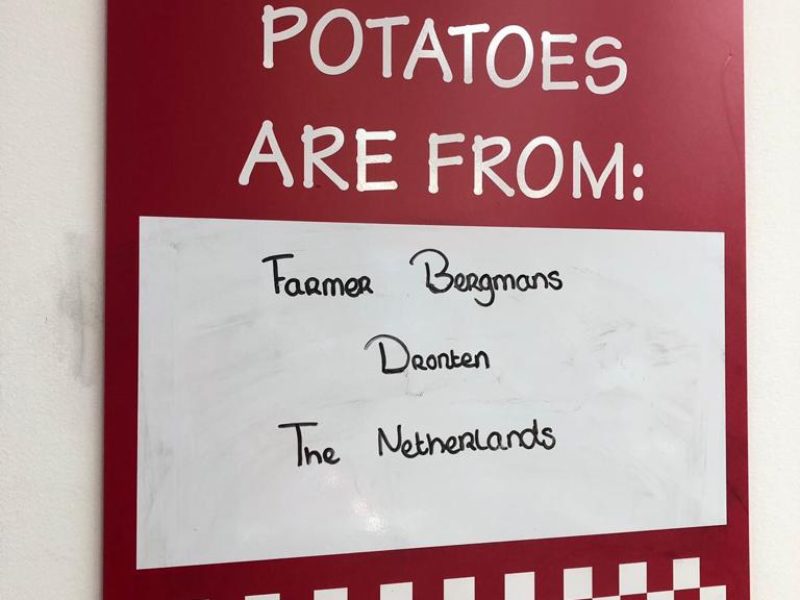 POTATOES
ARE FROM:
Farmer Bergmans
Dronten
The Netherlands